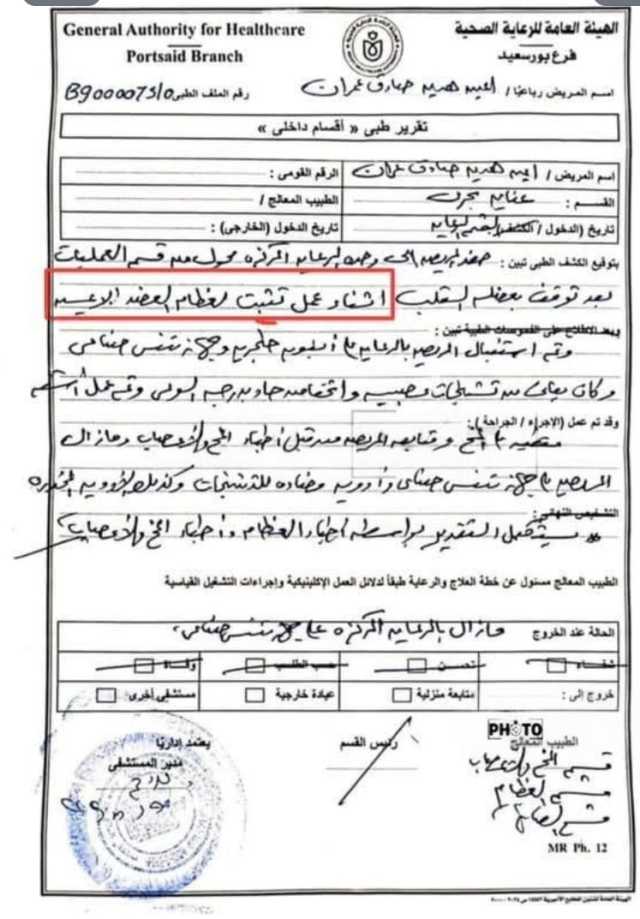 General Authority for Healthcare
Portsaid Branch
الهيئة العامة للرعاية الصحية
فرع بورسعيد
اسم المريض رباعيًا / صادق عمران
رقم الملف الطبى
تقرير طبى « أقسام داخلى »
اسم المريض / صادق عمران
الرقم القومى :
القسم : عنايه
الطبيب المعالج /
تاريخ (الدخول / الكشف)
تاريخ الدخول (الخارجى) :
بتوقيع الكشف الطبى تبين : حضر المريض الى وحده الرعايه المركزه محول من قسم العمليات
بعد توقف بعضله القلب اثناء عمل تثبت لعظام العضد الايسر
وبعد الاطلاع على الفحوصات الطبية تبين :
وتم استقبال المريض بالرعايه انبوبه حنجريه وجهاز تنفس صناعى
وكان يعانى من تشنجات عصبيه وانخفاض حاد بدرجه الوعى وتم عمل اشعه
وقد تم عمل (الإجراء / الجراحة) :
المخ ومتابعه المريض من قبل اطباء المخ والاعصاب ومازال
المريض جهاز تنفس صناعى وادويه مضاده للتشنجات وكذلك الادويه المخدره
التشخيص النهائى :
يستكمل التقرير بواسطه اطباء العظام واطباء المخ والاعصاب
الطبيب المعالج مسئول عن خطة العلاج والرعاية طبقاً لدلائل العمل الإكلينيكية وإجراءات التشغيل القياسية
الحالة عند الخروج مازال بالرعايه المركزه على جهاز تنفس صناعى
شفاء تحسن حسب الطلب وفاة
خروج إلى : متابعة منزلية عيادة خارجية مستشفى أخرى :
PHOTO
الطبيب المعالج
رئيس القسم
يعتمد إداريًا
مدير المستشفى
قسم المخ والاعصاب
قسم العظام
MR Ph. 12